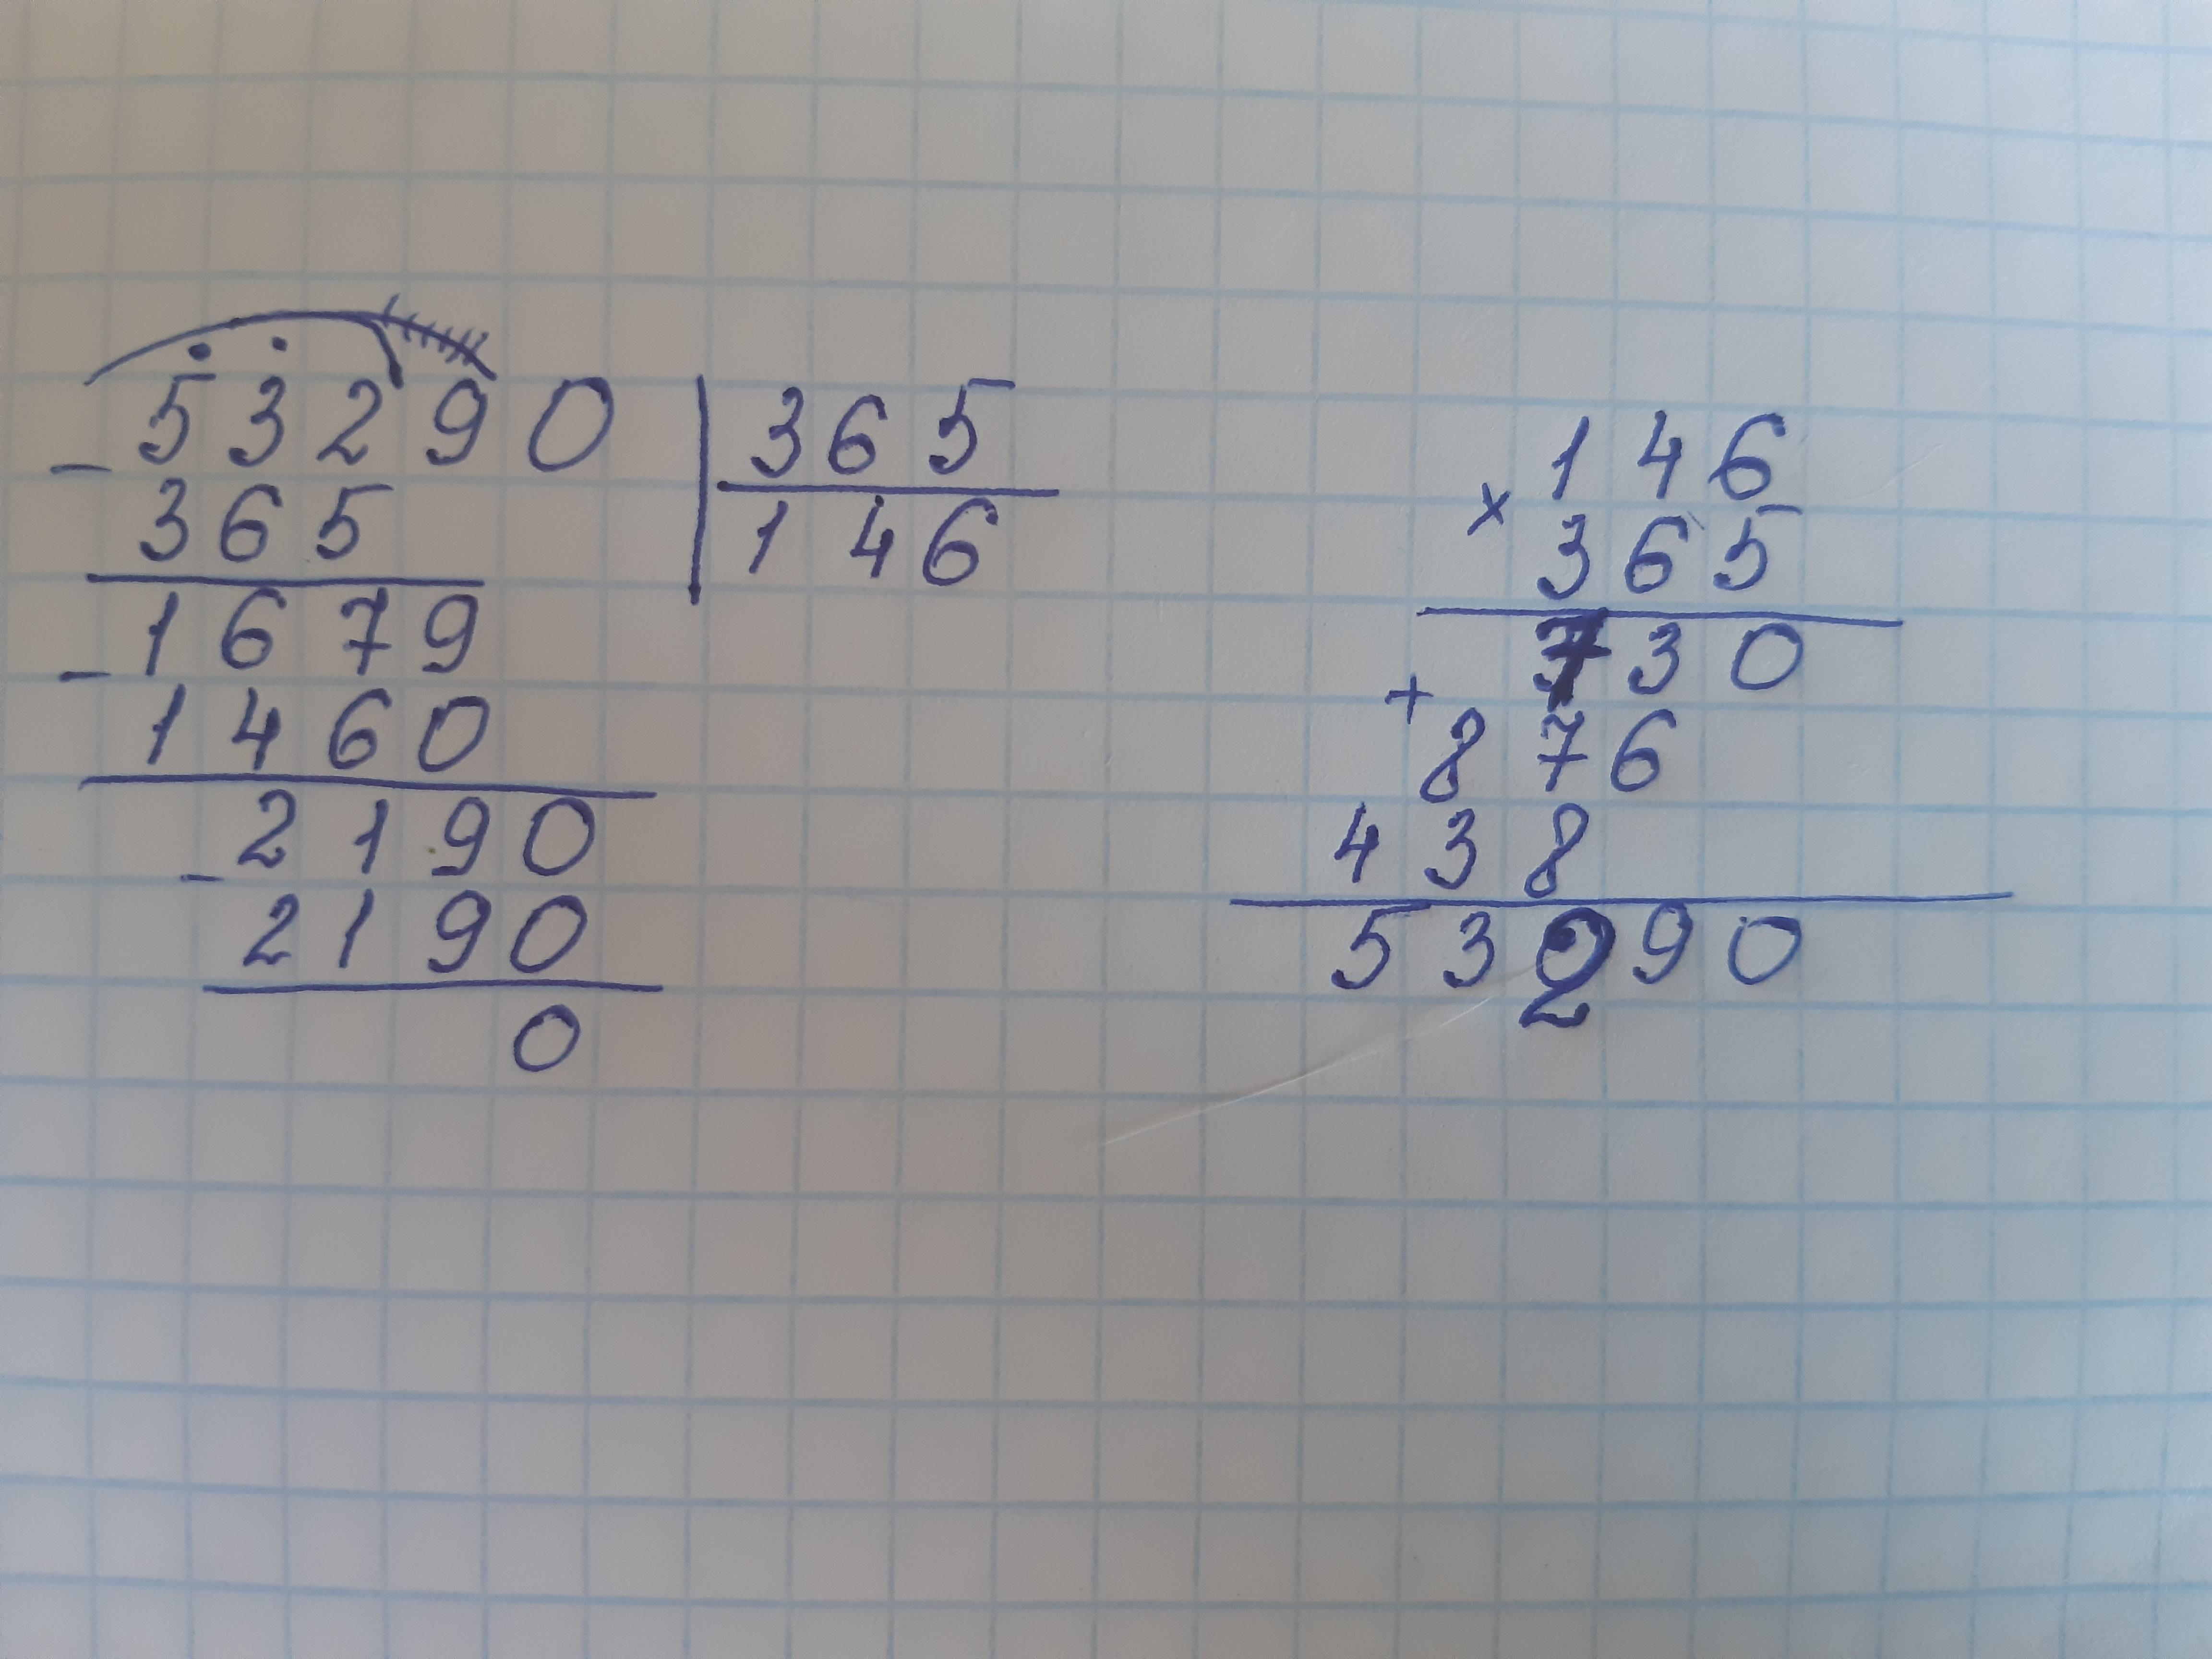 - 53290 | 365
365 | 146
- 1679
1460
- 2190
2190
0
146
× 365
730
+ 876
438
53290